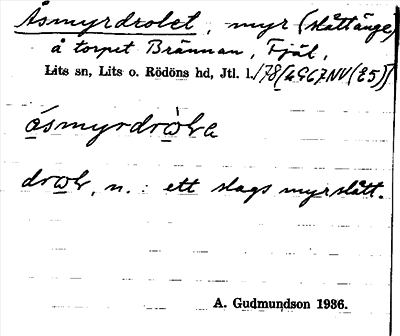 Åsmyrdrolet, myr (slåttänge)
å torpet Brännan, Fjäl,
Lits sn, Lits o. Rödöns hd, Jtl. l.
åsmyrdròla
drol, n.: ett slags myrslått.
A. Gudmundson 1936.